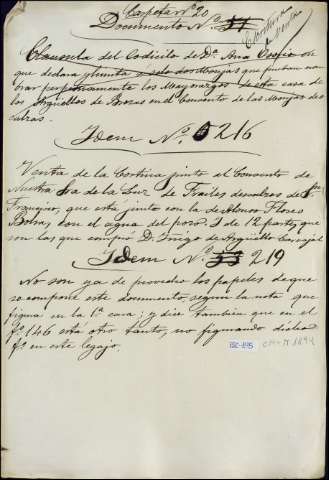 Carpeta nº 20
Documento Nº 11
Clausula del Codicilo de Dª Ana Osorio en
que declara
brar perpetuamente los Mayorazgos de esta casa de
los Arguellos de Brozas en el Convento de las Monjas des-
calzas.
Idem Nº 216
Ventta de la Cortina junto el Convento de
Nuestra Sra de la Luz de Frailes descalzos de Sn
Francisco, que esta junto con la de Alonso Flores
con el agua del pozo. Y de 12 partes, que
son las que compro D. Iñigo de Arguello Carvajal
Idem Nº 33 219
No son ya de provecho los papeles de que
se compone este documento, segun la nota que
figura en la 1ª cara; y dice tambien que en el
fº 146 está otro tanto, no figurando dicho
fº en este legajo.